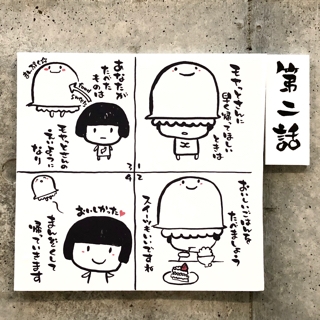 第二話
モヤッとさんに
早く帰ってほしい
ときは
おいしいごはんを
たべましょう
スイーツもいいですね
あなたが
たべた
ものは
モヤッとさんの
えいように
なり
まんぞくして
帰っていきます
おいしかった